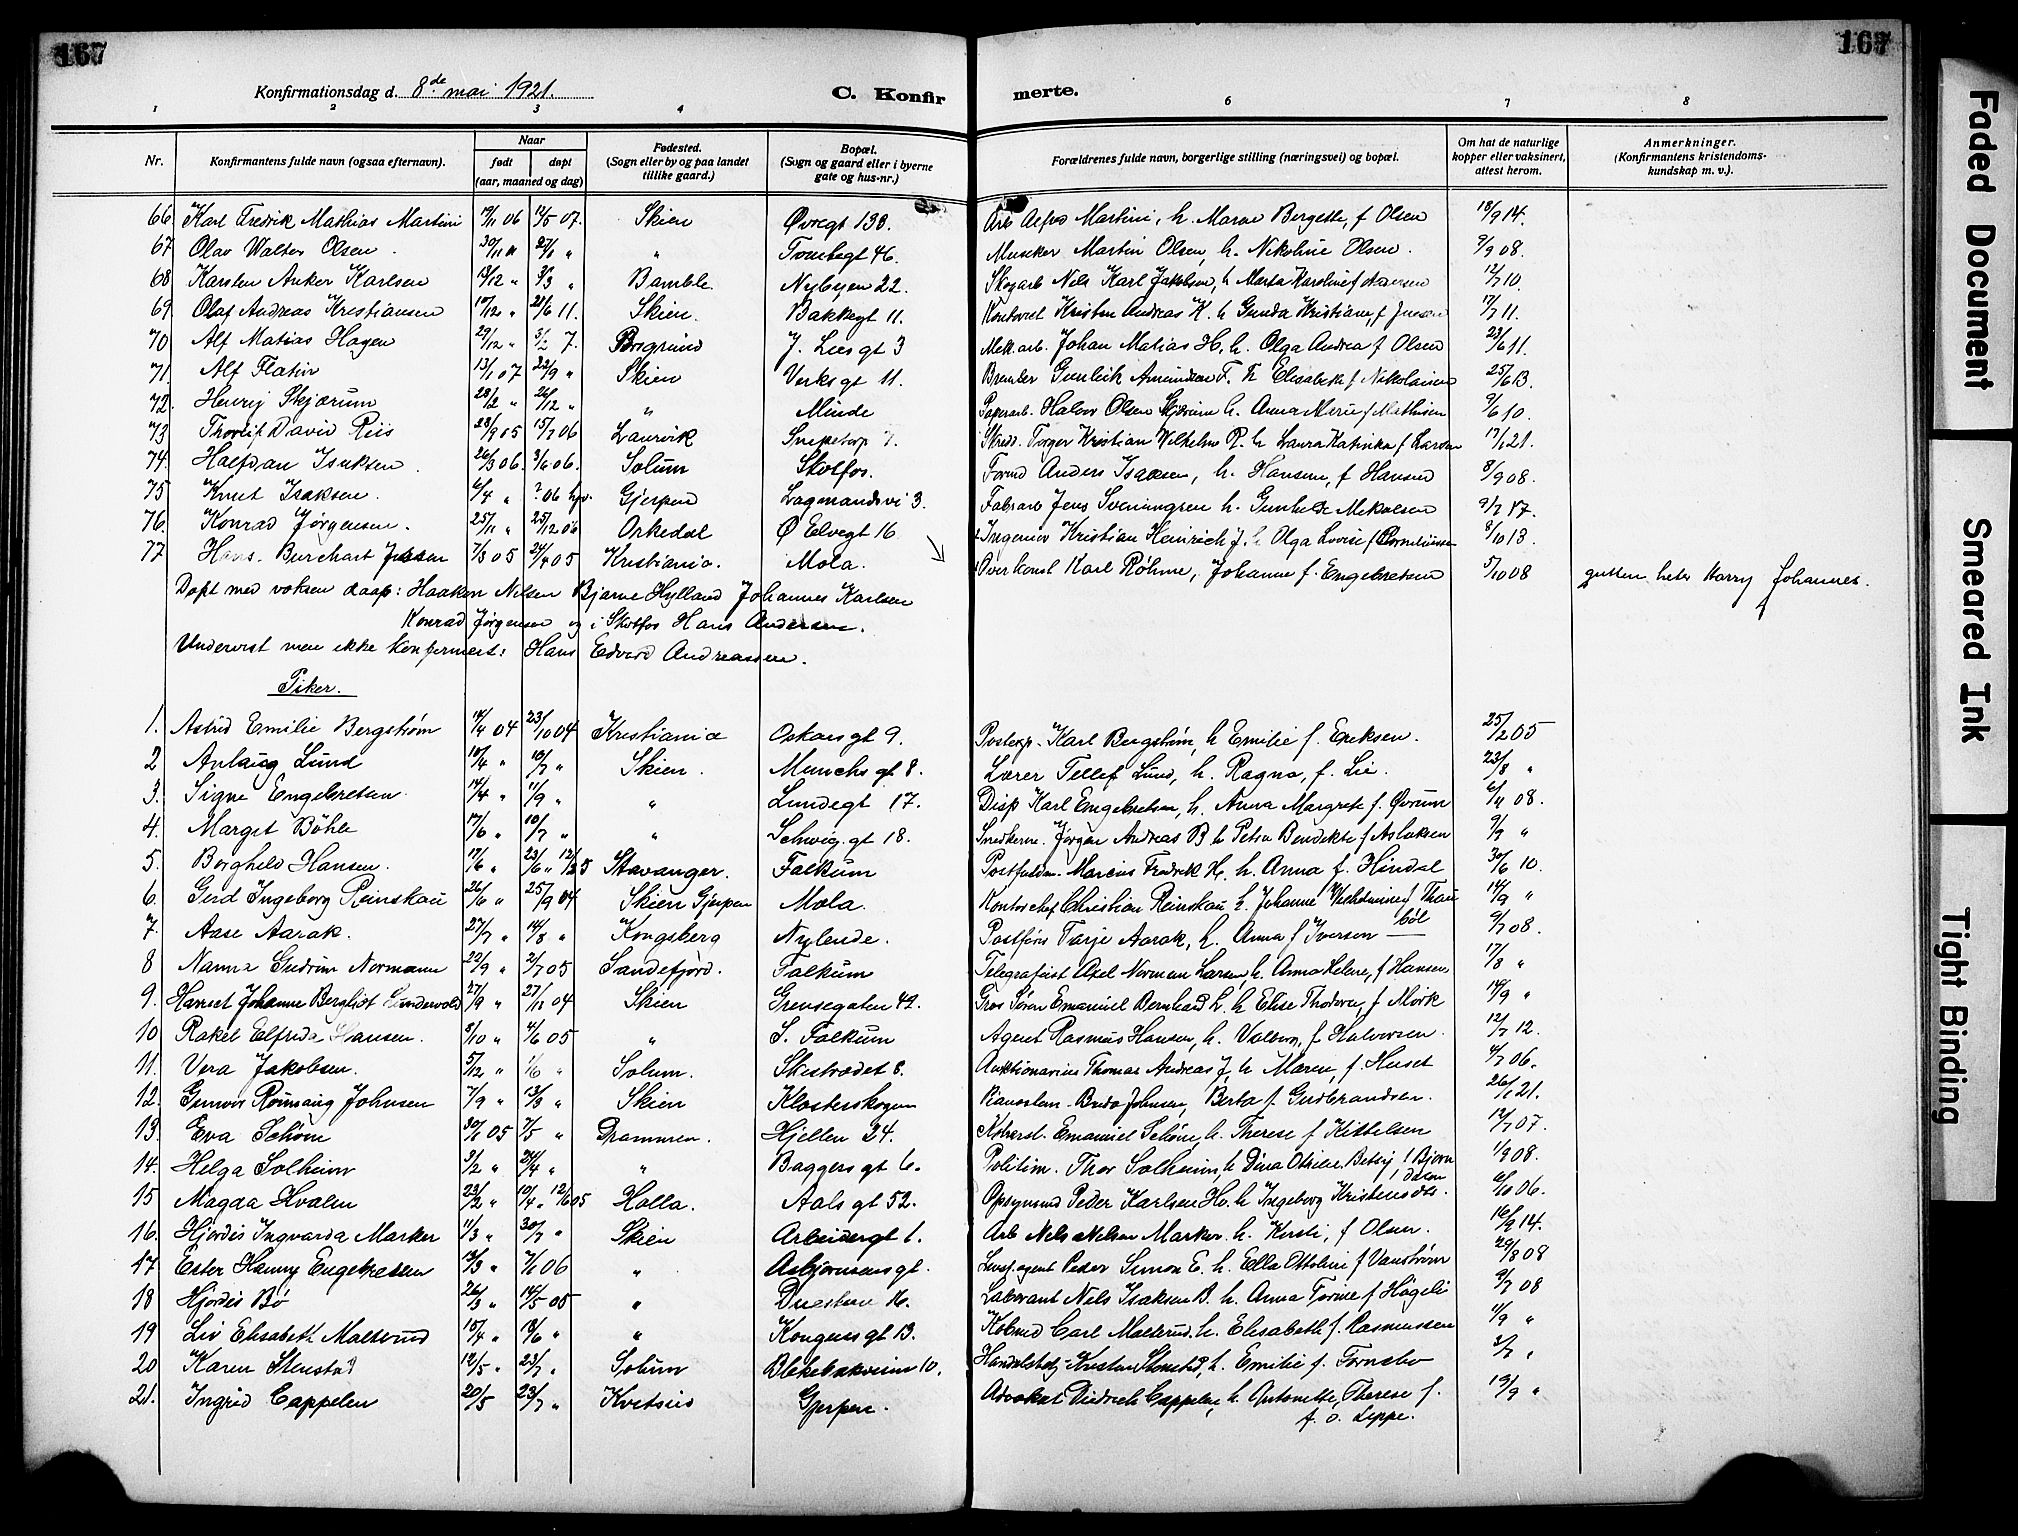 167
167
Konfirmationsdag d. 8de mai 1921.
C. Konfirmerte.
1 2 3 4 6 7 8
Nr.
Konfirmantens fulde navn (ogsaa efternavn).
Naar
født
døpt
(aar, maaned og dag)
Fødested.
(Sogn eller by og paa landet tillike gaard.)
Bopæl.
(Sogn og gaard eller i byerne gate og hus-nr.)
Forældrenes fulde navn, borgerlige stilling (næringsvei) og bopæl.
Om hat de naturlige kopper eller vaksinert, attest herom.
Anmerkninger.
(Konfirmantens kristendoms-kundskap m. v.).
66 Karl Fredrik Mathias Martini 06 07. Skien Øvregt 138. Arb Martini, h. Maren Bergette, f Olsen 18/9 14.
67 Olav Walter Olsen. " " Tomtegt 46. Murker Martin Olsen, h. Nikoline Olsen. 9/9 08.
68 Karsten Anker Karlsen 13/12 " 3/3 " Bamble. Nybyen 22. Skogarb Nils Karl Jakobsen, h Marta Karoline f 12/7 10.
69 Olaf Andreas Kristiansen " 21/6 11. Skien. Bakkegt 11. Kristen Andreas K. h Gunda Kristiane, f Jensen 17/7 11.
70 Alf Matias Hagen 29/12 " 3/2 7. Porsgrund J. Lies gt 3 Mek. arb. Johan Matias H, h. Olga Andrea f Olsen 23/6 11.
71. Alf Flatin 13/1 07 22/9 " Skien Verksgt 11. Gunleik Amundsen F. h Elisabeth f Nikolaisen 25/6 13.
72. Henry Skjærum 28/2 " 26/12 " " Minde Papirarb. Halvor Olsen Skjærum h. Anna Marie f Mathisen 9/6 10.
73 Thorleif David Riis 28/9 05 15/7 06 Laurvik Snipetorp 7. Skred. Torger Kristian Wilhelm R. h Laura Katinka f Larsen 17/1 21.
74. Halfdan Isaksen. 26/3 06. 3/6 06. Solum Skotfos. Form Anders Isaksen, h. Hansine, f Hansen 8/9 08.
75 Knut Isaksen. 6/4 " ? 06 hj. Gjerpen Lagmandsvi 3. Fabrarb Jens Sveningsen h. Gunhild Mikalsen 9/7 17.
76. Konrad Jørgensen. 25/11 " 25/12 06 Orkedal Ø Elvegt 16. Ingeniør Kristian Heinrich J. h Olga Lovise f Corneliussen 8/10 13.
77 Hans. Burchart Jensen 7/3 05 24/4 05 Kristiania. Mola. Overkonst Karl Røhme, Johanne f. Engebretsen 5/10 08 gutten heter Harry Johannes.
Døpt med voksen daap: Haakon Nilsen Bjarne Hylland Johannes Karlsen
Konrad Jørgensen og i Skotfos Hans Andersen.
Undervist men ikke konfirmert: Hans Edvard Andreassen.
Piker.
1. Astrid Emilie Bergstrøm 04 23/10 04 Kristiania Oskarsgt 9. Postexp. Karl Bergstrøm, h Emilie f. Eriksen. 25/2 05
2 Aslaug Lund 10/4 " 10/7 " Skien. Munchsgt 8. Lærer Tellef Lund, h. Ragna, f. Lie. 23/8 "
3. Signe Engebretsen 14/4 " 11/9 " " Lundegt 17. Disp Karl Engebretsen, h. Anna Margrete f. Øvrum 08.
4. Margit Bøhle 17/6 " 10/7 " " Schwig. gt 18. Snedkerm. Jørgen Andreas B h Petra Bendikte f Aslaksen 9/9 "
5. Borghild Hansen. 17/6 " 23/6 " Stavanger. Falkum Postfuldm. Marius Fredrik H. h. Anna f. Hindal 30/6 10.
6. Gerd Ingeborg Reinskau 26/6 " 25/9 04 Skien Gjerpen Mola. Kontorchef Christian Reinskau h. Johanne Wilhelmine f Thau 14/9 "
7. Aase Aarak. 27/7 " 14/8 " Kongsberg Nylende. Postførn Tarje Aarak, h. Anna f Iversen bøl 9/7 08.
8 Nanna Gudrun Normann 22/9 " 2/7 05 Sandefjord. Falkum Telegrafist Axel Norman Larsen, h. Anna Helene, f Hansen 17/8 "
9. Harriet Johanne Bergliot 27/9 " 27/11 04 Skien Grensegaten 42. Gros Søren Emanuel Bernhard L. h Elise Thodora, f Mørk 14/9 "
10 Rakel Elfrida Hansen. 8/10 " 4/6 05 " S. Falkum Agent Rasmus Hansen, h. Valborg, f Halvorsen. 12/7 12.
11. Vera Jakobsen. 5/12 " 1/6 " Solum. Skistredet 8. Auktionarius Thomas Andreas J, h Maren, f Huset 4/7 06.
12. Gunvor Rønnaug Johnsen 7/9 " 13/3 " Skien Klosterskogen Johnsen, Berta f. Gudbrandsen. 26/1 21.
13. Eva Schøne 30/1 05 7/5 " Drammen. Hjellen 24. Emanuel Schøne, h. Therese f Kittelsen 12/7 07.
14. Helga Solheim 3/2 " 24/4 " " Baggersgt 6. Politim. Thor Solheim, h Dina Otilie Betsy f Bjørn 1/9 08.
15 Magda Hvalen 23/2 " 10/4 " Holla. Aalsgt 52. Opsynsmd Peder Karlsen Hv. h Ingeborg Kristensdtr. 6/10 06.
16. Hjørdis Ingvarda Marker 11/3 " 30/7 " Skien Arbeidergt 1. Arb Nels Nelsen Marker h. Kirsti, f Olsen. 16/9 14.
17. Ester Hanny Engebretsen 12/3 " 7/1 06 " Asbjørnsensgt. Livsf. agent Peder Simon E. h. Ella Ottoline f Vanstrøm 29/8 08
18 Hjørdis Bø 26/3 " 14/5 05 " 16. Laborant Nils Isaksen B. h. Anna Torine f Høgeli 9/7 08
19 Liv Elisabeth Malterud 15/4 " 18/6 " " Kongensgt 13. Købmd Carl Malterud. h. Elisabeth f. Rasmussen 11/9 "
20 Karen Stenstad 12/5 " 23/7 " Solum Blekebakveien 10. Kristen Stenstad, h. Emilie f. Tornsbo 2/7 "
21. Ingrid Cappelen 20/5 23/7 " Kvitseid Gjerpen. Advokat Diedrich Cappelen, h. Antonette, Therese f. 19/9 "
f. d. Lippe.
Faded Document
Smeared Ink
Tight Binding